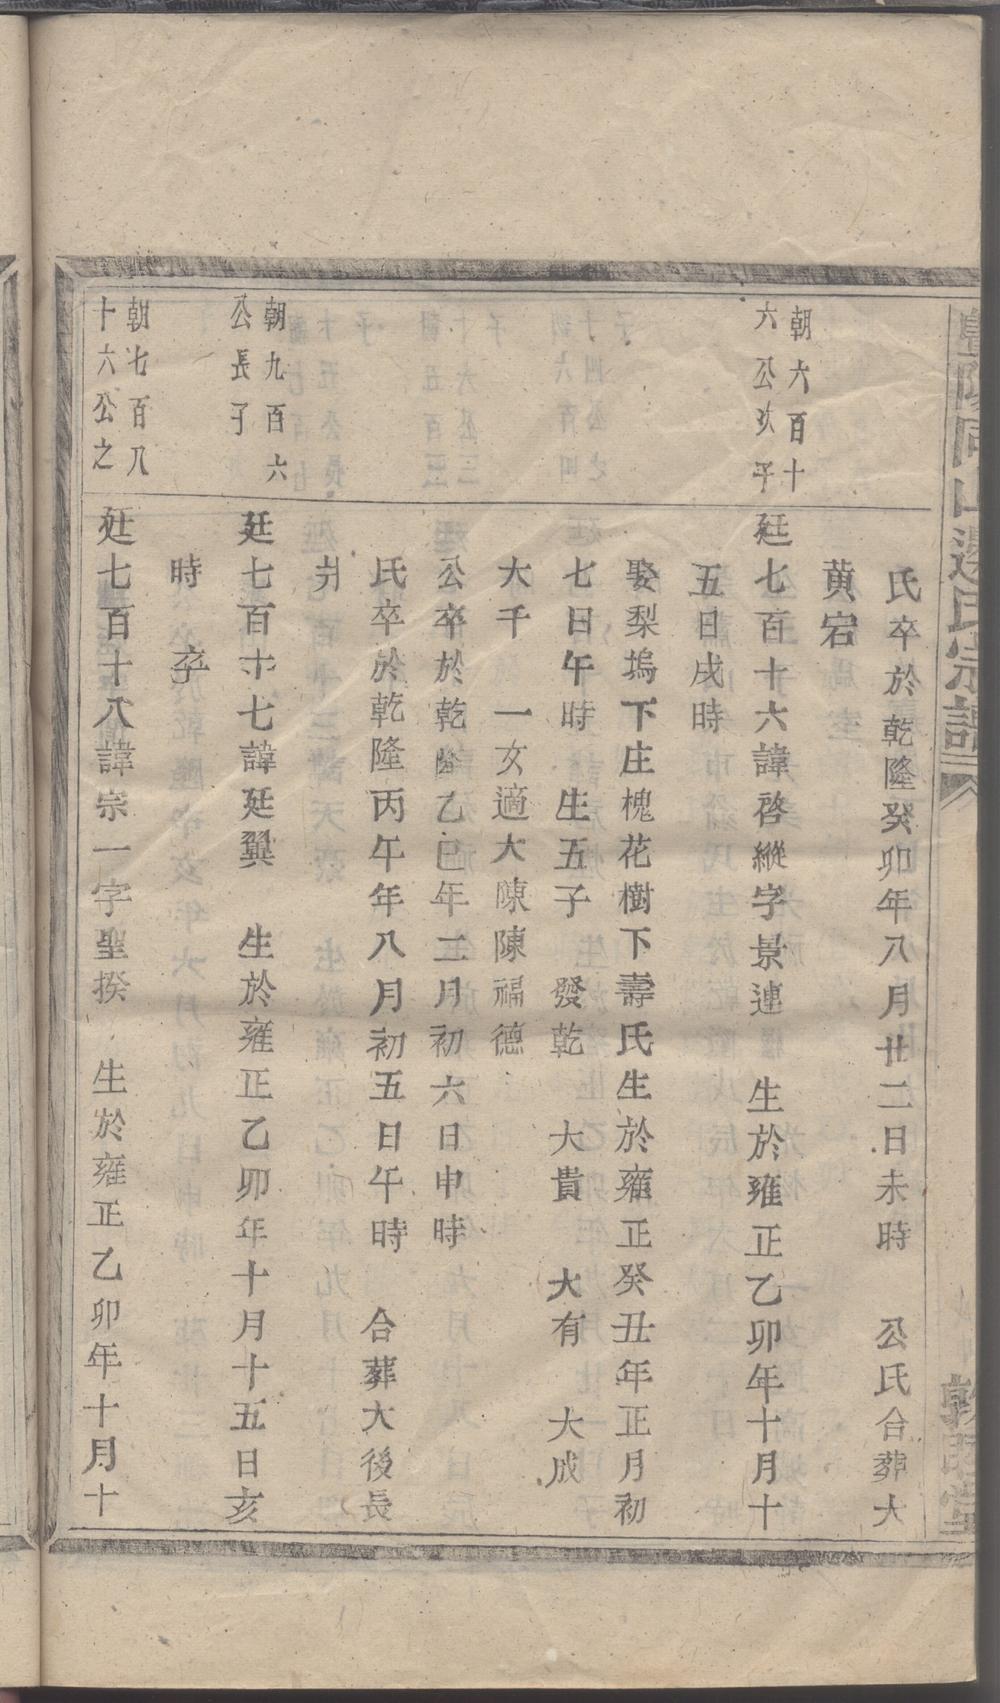 暨陽同山邊氏宗譜
敦睦堂
氏卒於乾隆癸卯年八月廿二日未時　公氏合葬大
黄宕
朝六百十
六公次子
廷七百十六諱啓縱字景連　生於雍正乙卯年十月十
五日戌時
娶梨塢下庄槐花樹下壽氏生於雍正癸丑年正月初
七日午時　生五子　發乾　大貴　大有　大成
大千　一女適大陳陳福德
公卒於乾隆乙巳年二月初六日申時
氏卒於乾隆丙午年八月初五日午時　合葬大後長
爿
朝九百六
公長子
廷七百十七諱廷翼　生於雍正乙卯年十月十五日亥
時　卒
朝七百八
十六公之
廷七百十八諱宗一字聖揆　生於雍正乙卯年十月十